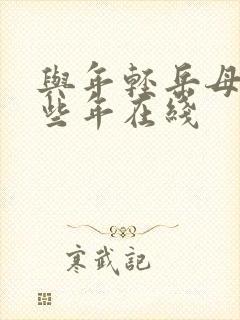 與年輕岳母
些年在綫
寒武記